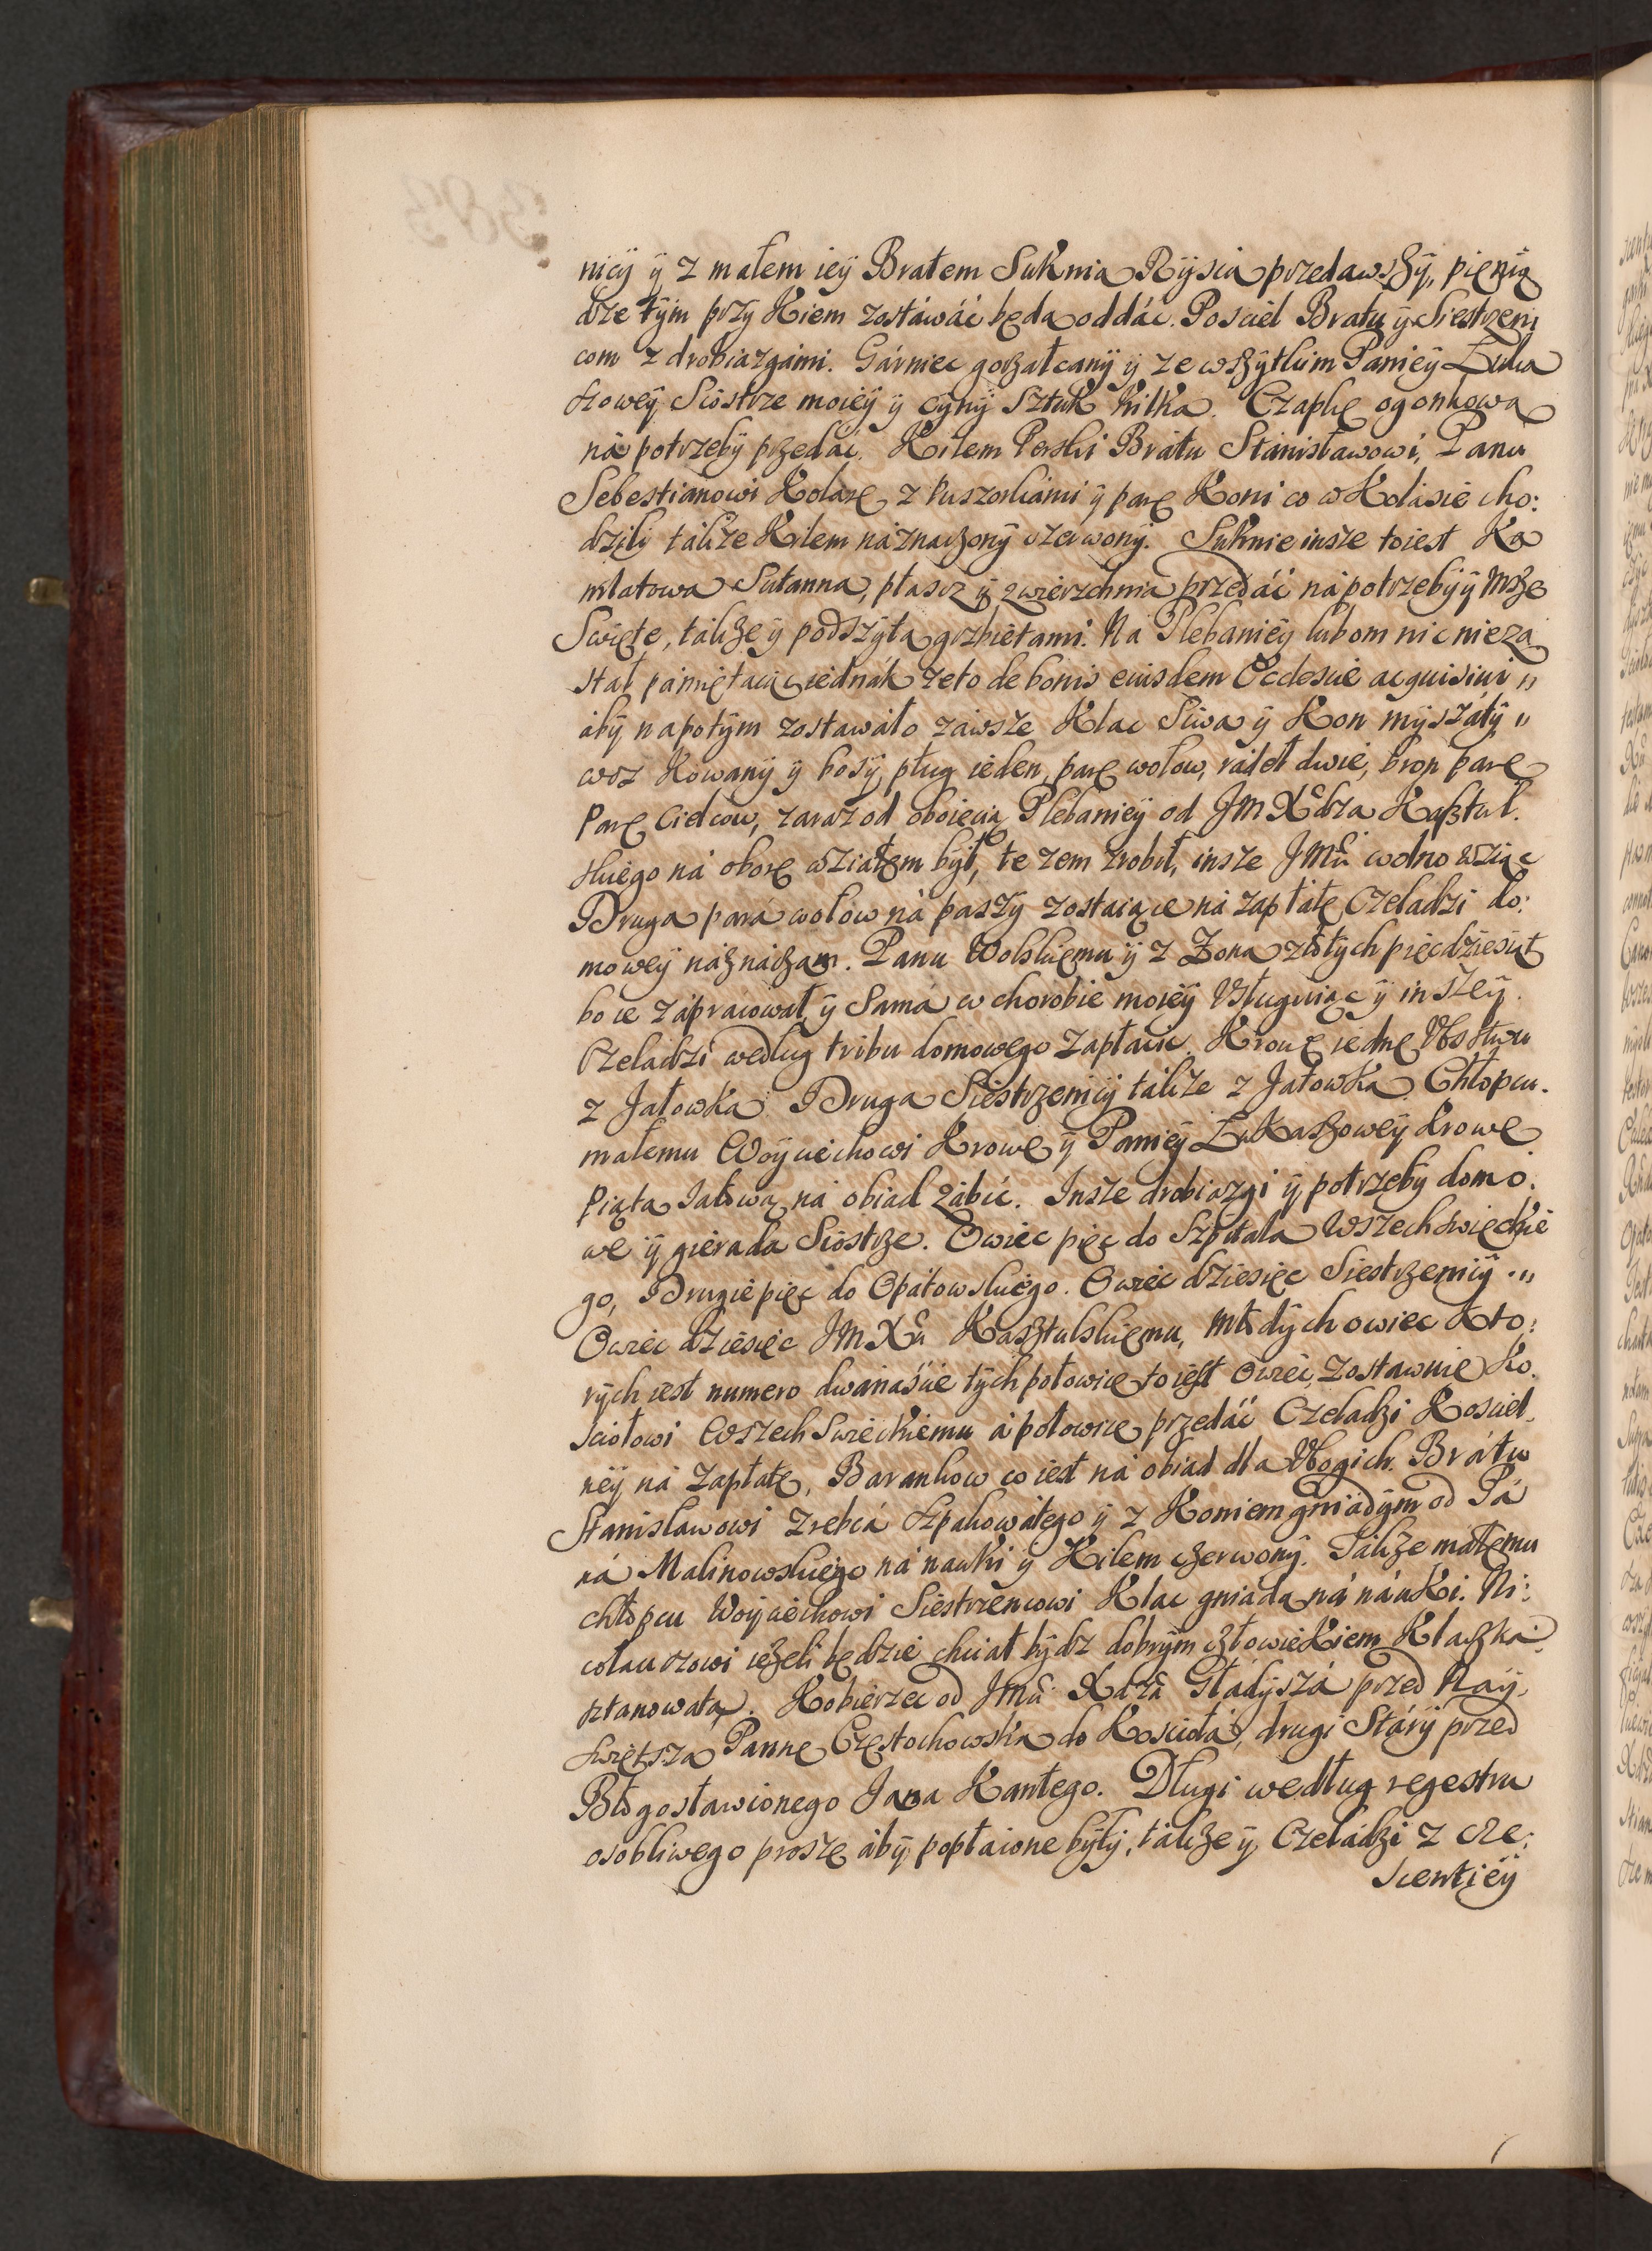 nicy ÿ z małem ieÿ Bratem Suknia Rÿsia przedawszÿ, pięnią
dze tÿm przy Kiem zostáwáć będa oddác. Posciel Bratu ÿ Siestrzen
com z drobiazgámi. Gárniec gorzałcanÿ ÿ ze wszÿtkim Panieÿ Łuka
szoweÿ Siostrze moieÿ ÿ cÿnÿ Sztuk kilka. Czapkę ogonkowa
ná potrzebÿ przedac. Kilem Perski Brátu Stánisławowi, Panu
Sebestianowi Kolasę z Puszorkámi ÿ parę Koni co w Kolásie cho:
dziłÿ tákze Kilem náznaczonÿ czerwonÿ. Suknie insze toiest Ka
mlatowa Sutanna, płascz ÿ zwierzchnia przedáć ná potrzebÿ ÿ Msze
Swięte, tákze ÿ podszÿta grzbietami. Na Plebanieÿ lubom nic nieza
stał, pámiętaiąc iednák ze to de bonis eiusdem Ecclesiæ acquisiui "
abÿ napotÿm zostawáło záwsze Klac Siwa ÿ Kon mÿszátÿ "
woz Kowanÿ ÿ bosÿ, pług ieden, parę wołow, rádeł dwie, bron parę
Parę Cielcow, zaraz od obięcia Plebanieÿ od JM Xdza Kasztul.
skiego ná oborę wziąłem bÿł, te zem zrobił, insze JMci wolno wziąc
Druga pará wołów ná paszÿ zostaiące ná zapłátę Czeladzi do:
moweÿ náznáczam. Panu Wolskiemu ÿ z Zona złotÿch pięcdziesiąt
bo ie zápracował, ÿ Samá w chorobie moieÿ Vsługuiąc ÿ inszeÿ.
Czeladzi według tribu domowego zapłacic. Krowę iednę
z Jałowka Druga Siestrzenicÿ tákze z Jałowka Chłopcu.
małemu Woÿciechowi Krowę ÿ Panieÿ Łukaszoweÿ Krowę
Piąta Jałowa ná obiad zábic. Insze drobiazgi ÿ potrzebÿ domo.
we ÿ gieráda Siostrze. Owiec pięc do Szpitala Wszechświęckie
go, Drugie pięc do Opátowskiego. Owiec dziesięc Siestrzenicÿ "
Owiec dziesięc JM Xu Kasztulskiemu, młodÿch owiec kto:
rÿch iest numero dwanáście tÿch połowicę to iest Owiec, zostawuię Ko.
sciołowi Wszech Swięckiemu á połowicę przedáć Czeladzi Kosciel.
neÿ ná zapłatę, Barankow co iest ná obiad dla Vbogich. Brátu
Stanisławowi Zrebca Szpakowátego ÿ z Koniem gniadÿm od Pá
ná Malinowskiego ná nauki ÿ Kilem czerwonÿ. Tákze małemu
chłopcu Woÿciechowi Siestrzencowi Klac gniáda ná náuki. Ni:
colauszowi iezeli będzie chciał bÿdz dobrÿm człowiekiem Klaczka
sztanowata. Kobierzec od JMci Xdza Gładÿszá przed Naÿ.
świętsza Pannę Częstochowska do Kosciołá, drugi Stárÿ przed
Błogosławionego Jana Kantego. Długi według regestru
osobliwego proszę ábÿ popłaione bÿłÿ, tákze ÿ Czeládzi z cre:
scentieÿ